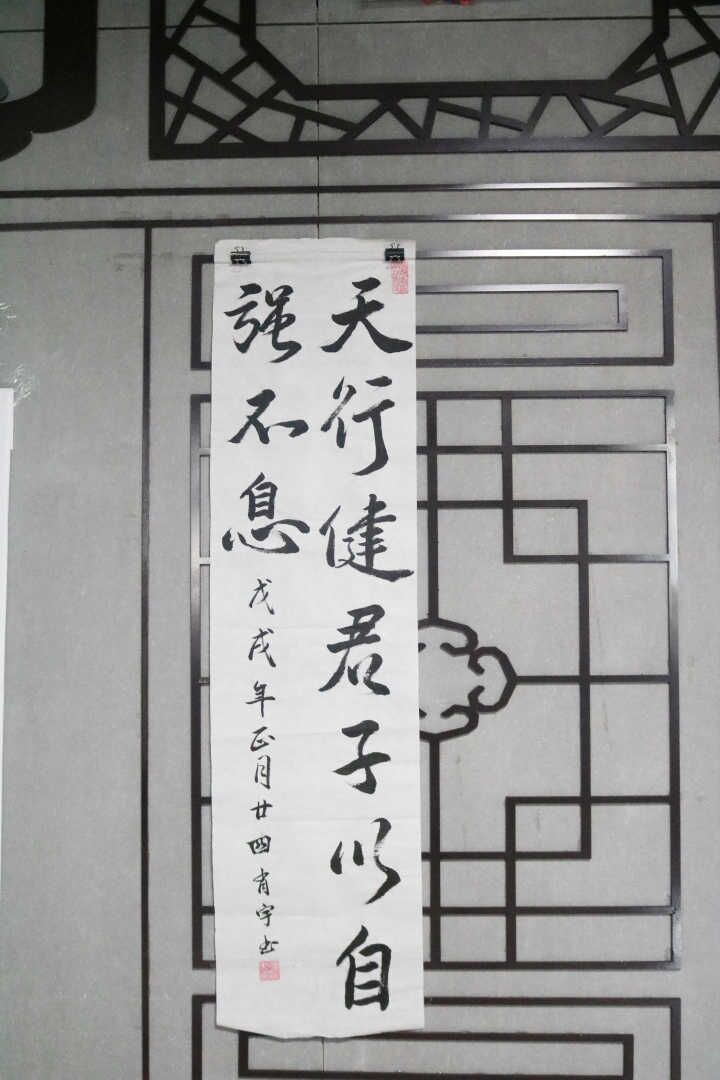 天行健君子以自
强不息戊戌年正月廿四肖宇书